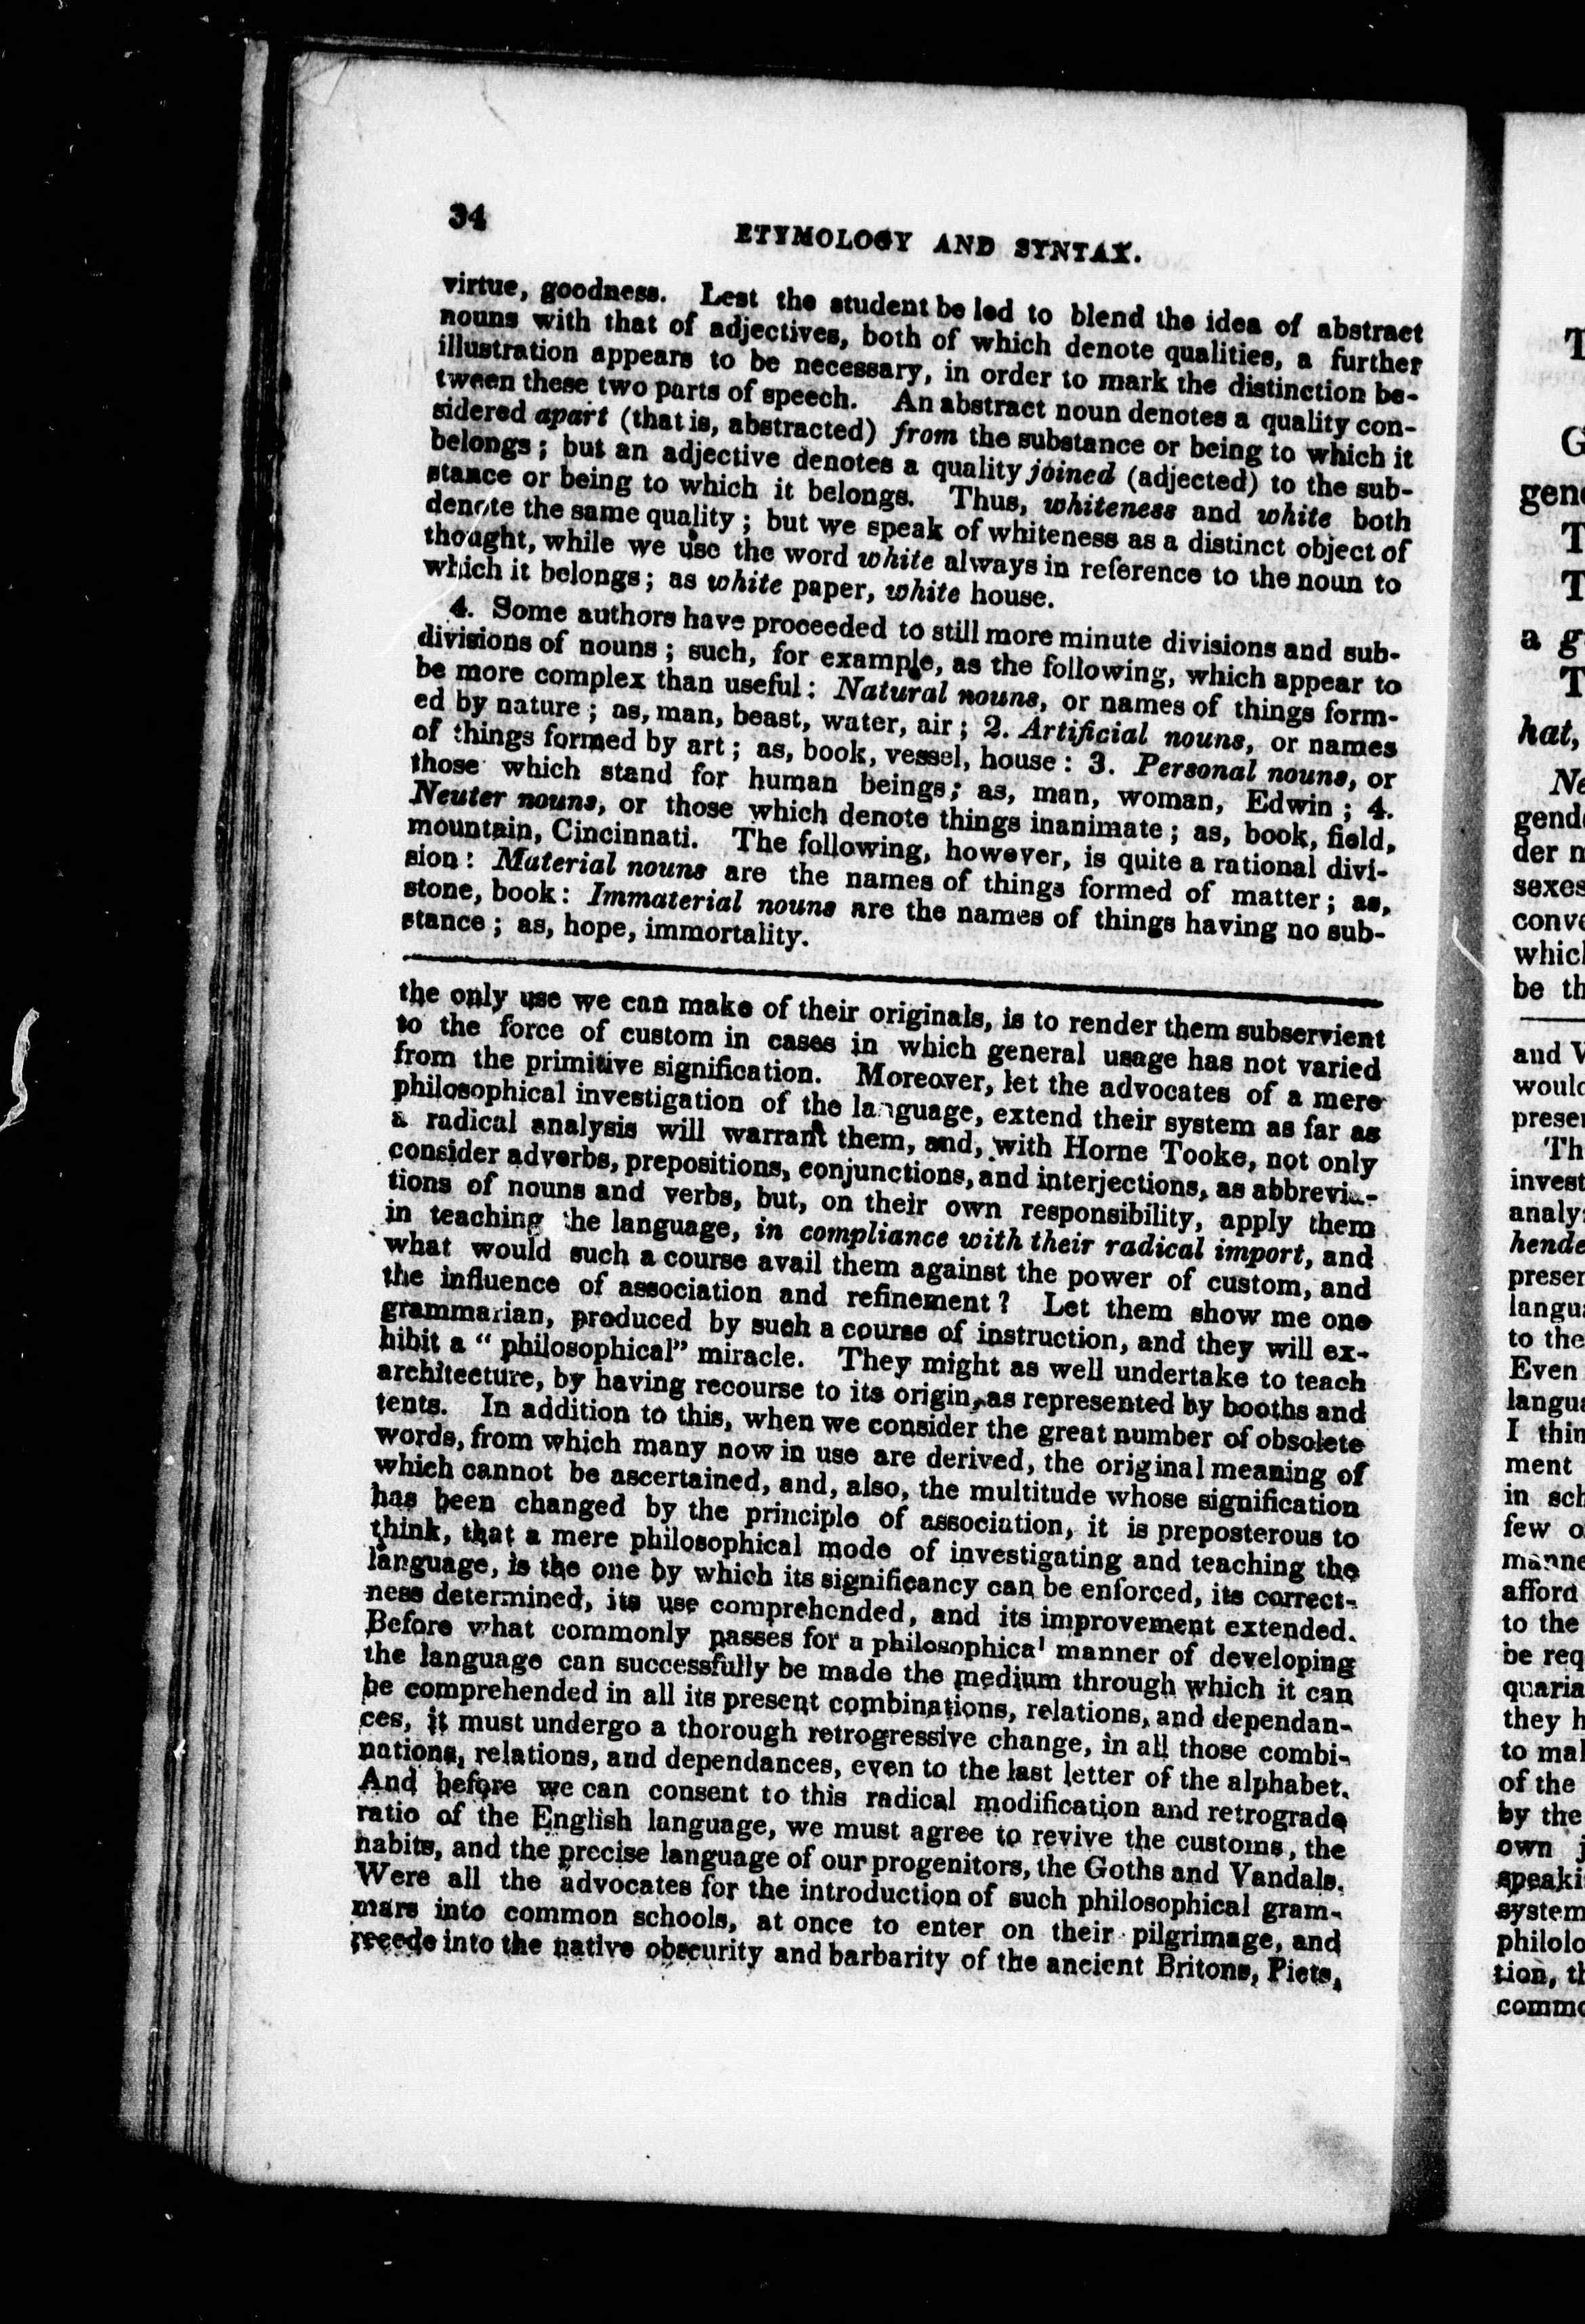 34
ETYMOLOGY AND SYNTAX.
virtue, goodness. Lest the student be led to blend the idea of abstract
nouns with that of adjectives, both of which denote qualities, a further
illustration appears to be necessary, in order to mark the distinction be-
tween these two parts of speech. An abstract noun denotes a quality con-
sidered apart (that is, abstracted) from the substance or being to which it
belongs; but an adjective denotes a quality joined (adjected) to the sub-
stance or being to which it belongs. Thus, whiteness and white both
denote the same quality; but we speak of whiteness as a distinct object of
thought, while we use the word white always in reference to the noun to
which it belongs; as white paper, white house.
4. Some authors have proceeded to still more minute divisions and sub-
divisions of nouns; such, for example, as the following, which appear to
be more complex than useful: Natural nouns, or names of things form-
ed by nature; as, man, beast, water, air; 2. Artificial nouns, or names
of things formed by art; as, book, vessel, house: 3. Personal nouns, or
those which stand for human beings; as, man, woman, Edwin; 4.
Neuter nouns, or those which denote things inanimate; as, book, field,
mountain, Cincinnati. The following, however, is quite a rational divi-
sion: Material nouns are the names of things formed of matter; as,
stone, book: Immaterial nouns are the names of things having no sub-
stance; as, hope, immortality.
the only use we can make of their originals, is to render them subservient
to the force of custom in cases in which general usage has not varied
from the primitive signification. Moreover, let the advocates of a mere
philosophical investigation of the language, extend their system as far as
a radical analysis will warrant them, and, with Horne Tooke, not only
consider adverbs, prepositions, conjunctions, and interjections, as abbrevia-
tions of nouns and verbs, but, on their own responsibility, apply them
in teaching the language, in compliance with their radical import, and
what would such a course avail them against the power of custom, and
the influence of association and refinement? Let them show me one
grammarian, produced by such a course of instruction, and they will ex-
hibit a "philosophical" miracle. They might as well undertake to teach
architecture, by having recourse to its origin, as represented by booths and
tents. In addition to this, when we consider the great number of obsolete
words, from which many now in use are derived, the original meaning of
which cannot be ascertained, and, also, the multitude whose signification
has been changed by the principle of association, it is preposterous to
think, that a mere philosophical mode of investigating and teaching the
language, is the one by which its significancy can be enforced, its correct-
ness determined, its use comprehended, and its improvement extended.
Before what commonly passes for a philosophical manner of developing
the language can successfully be made the medium through which it can
be comprehended in all its present combinations, relations, and dependan-
ces, it must undergo a thorough retrogressive change, in all those combi-
nations, relations, and dependances, even to the last letter of the alphabet.
And before we can consent to this radical modification and retrograde
ratio of the English language, we must agree to revive the customs, the
habits, and the precise language of our progenitors, the Goths and Vandals.
Were all the advocates for the introduction of such philosophical gram-
mars into common schools, at once to enter on their pilgrimage, and
recede into the native obscurity and barbarity of the ancient Britons, Picts,
T
G
gen
T
T
a g
T
hat,
Ne
gend
der
sexes
conve
which
be th
and V
would
prese
Th
invest
analy
hende
prese
langu
to the
Even
langu
I thin
ment
in sch
few o
manne
afford
to the
be req
quaria
they h
to mak
of the
by the
own
speaki
system
philolo
tion, th
commo